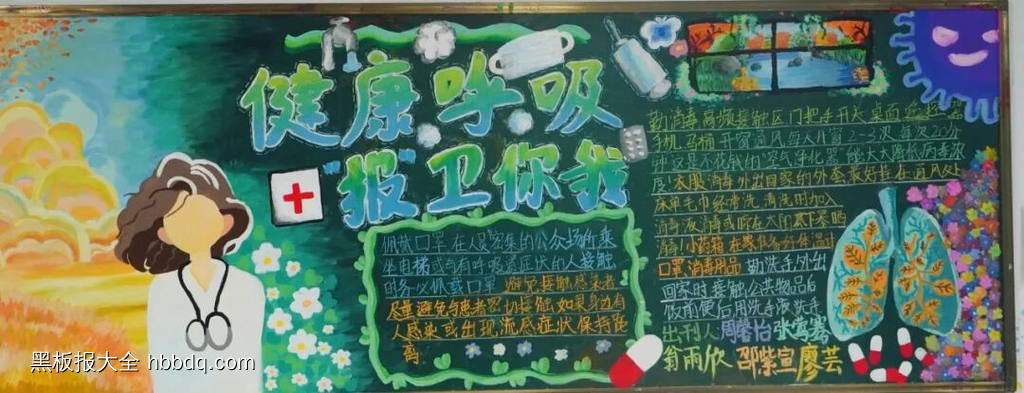 健康呼吸
"报"卫你我
佩戴口罩在人员密集的公众场所乘
坐电梯或与有呼吸道症状的人接触
时务必佩戴口罩 避免接触感染者
尽量避免与患者密切接触如果身边有
人感染或出现流感症状保持距
离
勤消毒高频接触区门把手开关桌面
手机马桶 开窗通风每天开窗2-3次每次
这是不花钱的"空气净化器"能大大降低病毒浓
度 衣服消毒外出回家的外套最好挂在通风处
床单毛巾经常洗 清洗时加入
消毒液消毒或晒在太阳底下
口罩 消毒用品 勤洗手外出
回家时接触公共物品后
饭前便后用洗手液洗手
出刊人
翁雨欣 邵紫宣 廖芸
黑板报大全 hbbdq.com